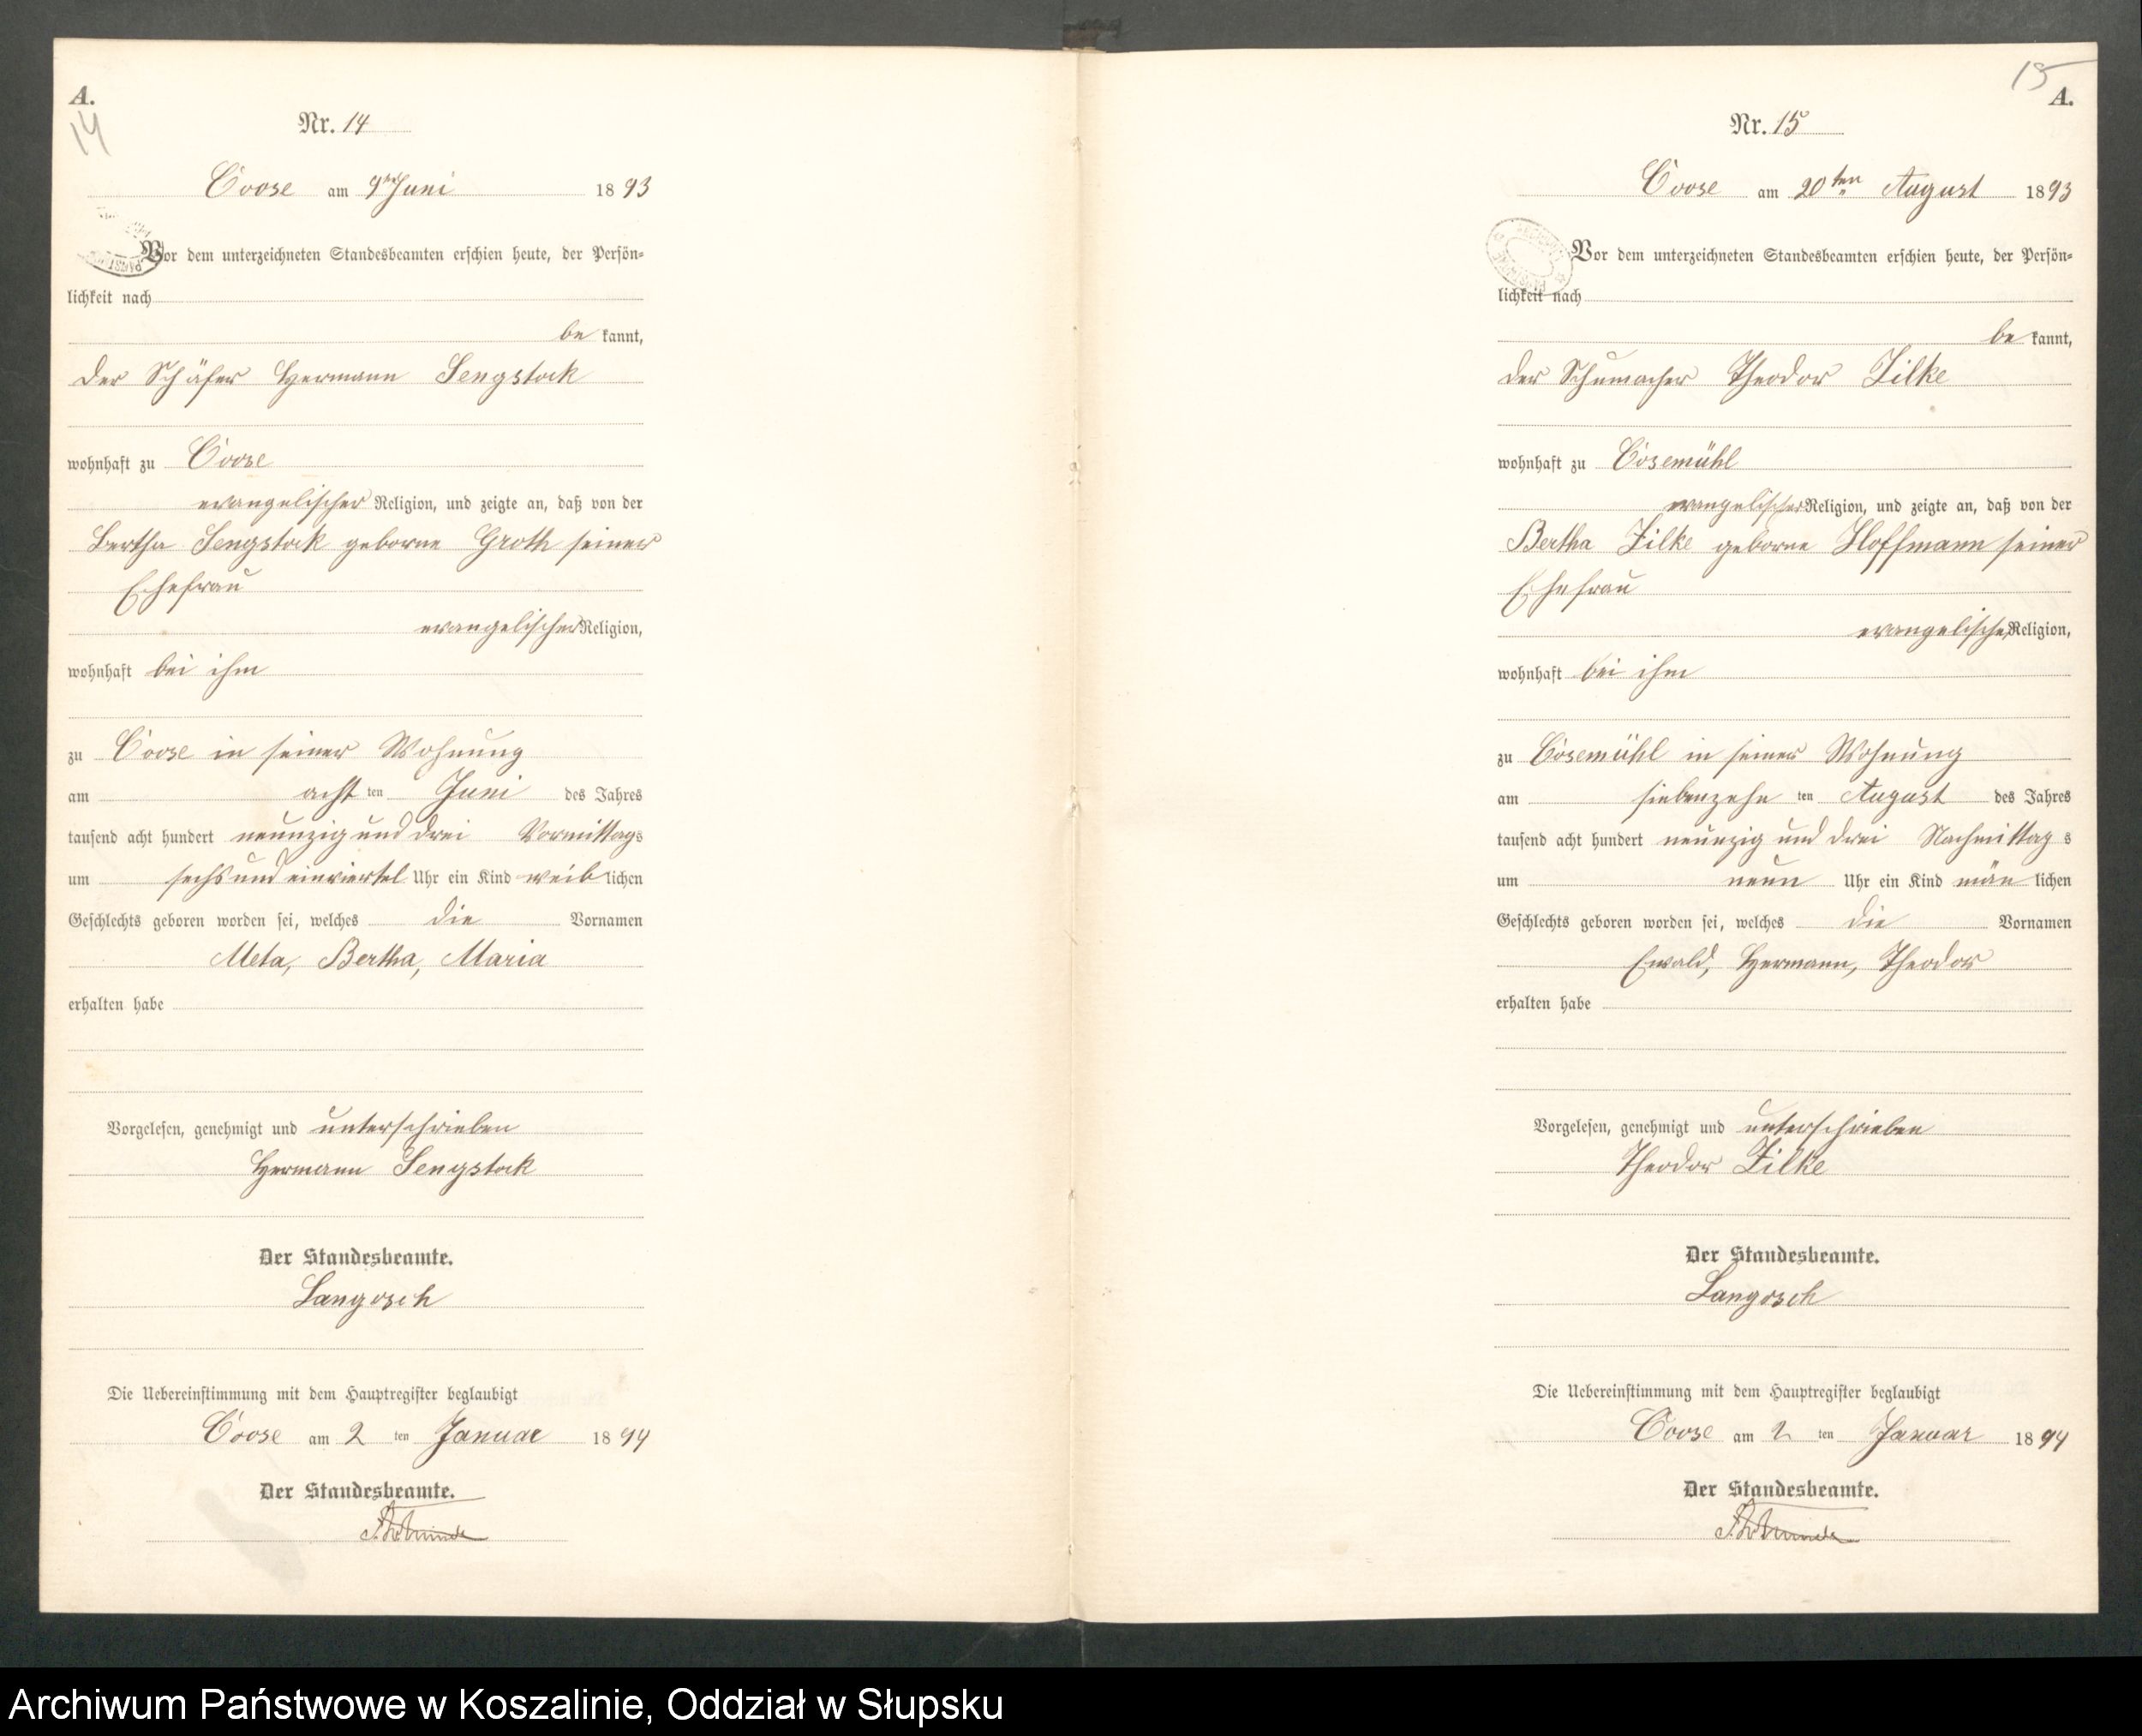 A.
14
Nr. 14
Coose am 9ten Juni 1893
Vor dem unterzeichneten Standesbeamten erschien heute, der Persön-
lichkeit nach
be kannt,
der Schäfer Hermann Sengstock
wohnhaft zu Coose
evangelischer Religion, und zeigte an, daß von der
Bertha Sengstock geborne Groth seiner
Ehefrau
evangelischer Religion,
wohnhaft bei ihm
zu Coose in seiner Wohnung
am acht ten Juni des Jahres
tausend acht hundert neunzig und drei Vormittags
um sechs und einviertel Uhr ein Kind weib lichen
Geschlechts geboren worden sei, welches die Vornamen
Meta, Bertha, Maria
erhalten habe
Vorgelesen, genehmigt und unterschrieben
Hermann Sengstock
Der Standesbeamte.
Langosch
Die Uebereinstimmung mit dem Hauptregister beglaubigt
Coose am 2 ten Januar 1894
Der Standesbeamte.
15
A.
Nr. 15
Coose am 20ten August 1893
Vor dem unterzeichneten Standesbeamten erschien heute, der Persön-
lichkeit nach
be kannt,
der Schumacher Theodor Zilke
wohnhaft zu Cosemühl
evangelischer Religion, und zeigte an, daß von der
Bertha Zilke geborne Hoffmann seiner
Ehefrau
evangelischer Religion,
wohnhaft bei ihm
zu Cosemühl in seiner Wohnung
am siebenzehn ten August des Jahres
tausend acht hundert neunzig und drei Nachmittag s
um neun Uhr ein Kind män lichen
Geschlechts geboren worden sei, welches die Vornamen
Ewald, Hermann, Theodor
erhalten habe
Vorgelesen, genehmigt und unterschrieben
Theodor Zilke
Der Standesbeamte.
Langosch
Die Uebereinstimmung mit dem Hauptregister beglaubigt
Coose am 2 ten Januar 1894
Der Standesbeamte.
Archiwum Państwowe w Koszalinie, Oddział w Słupsku